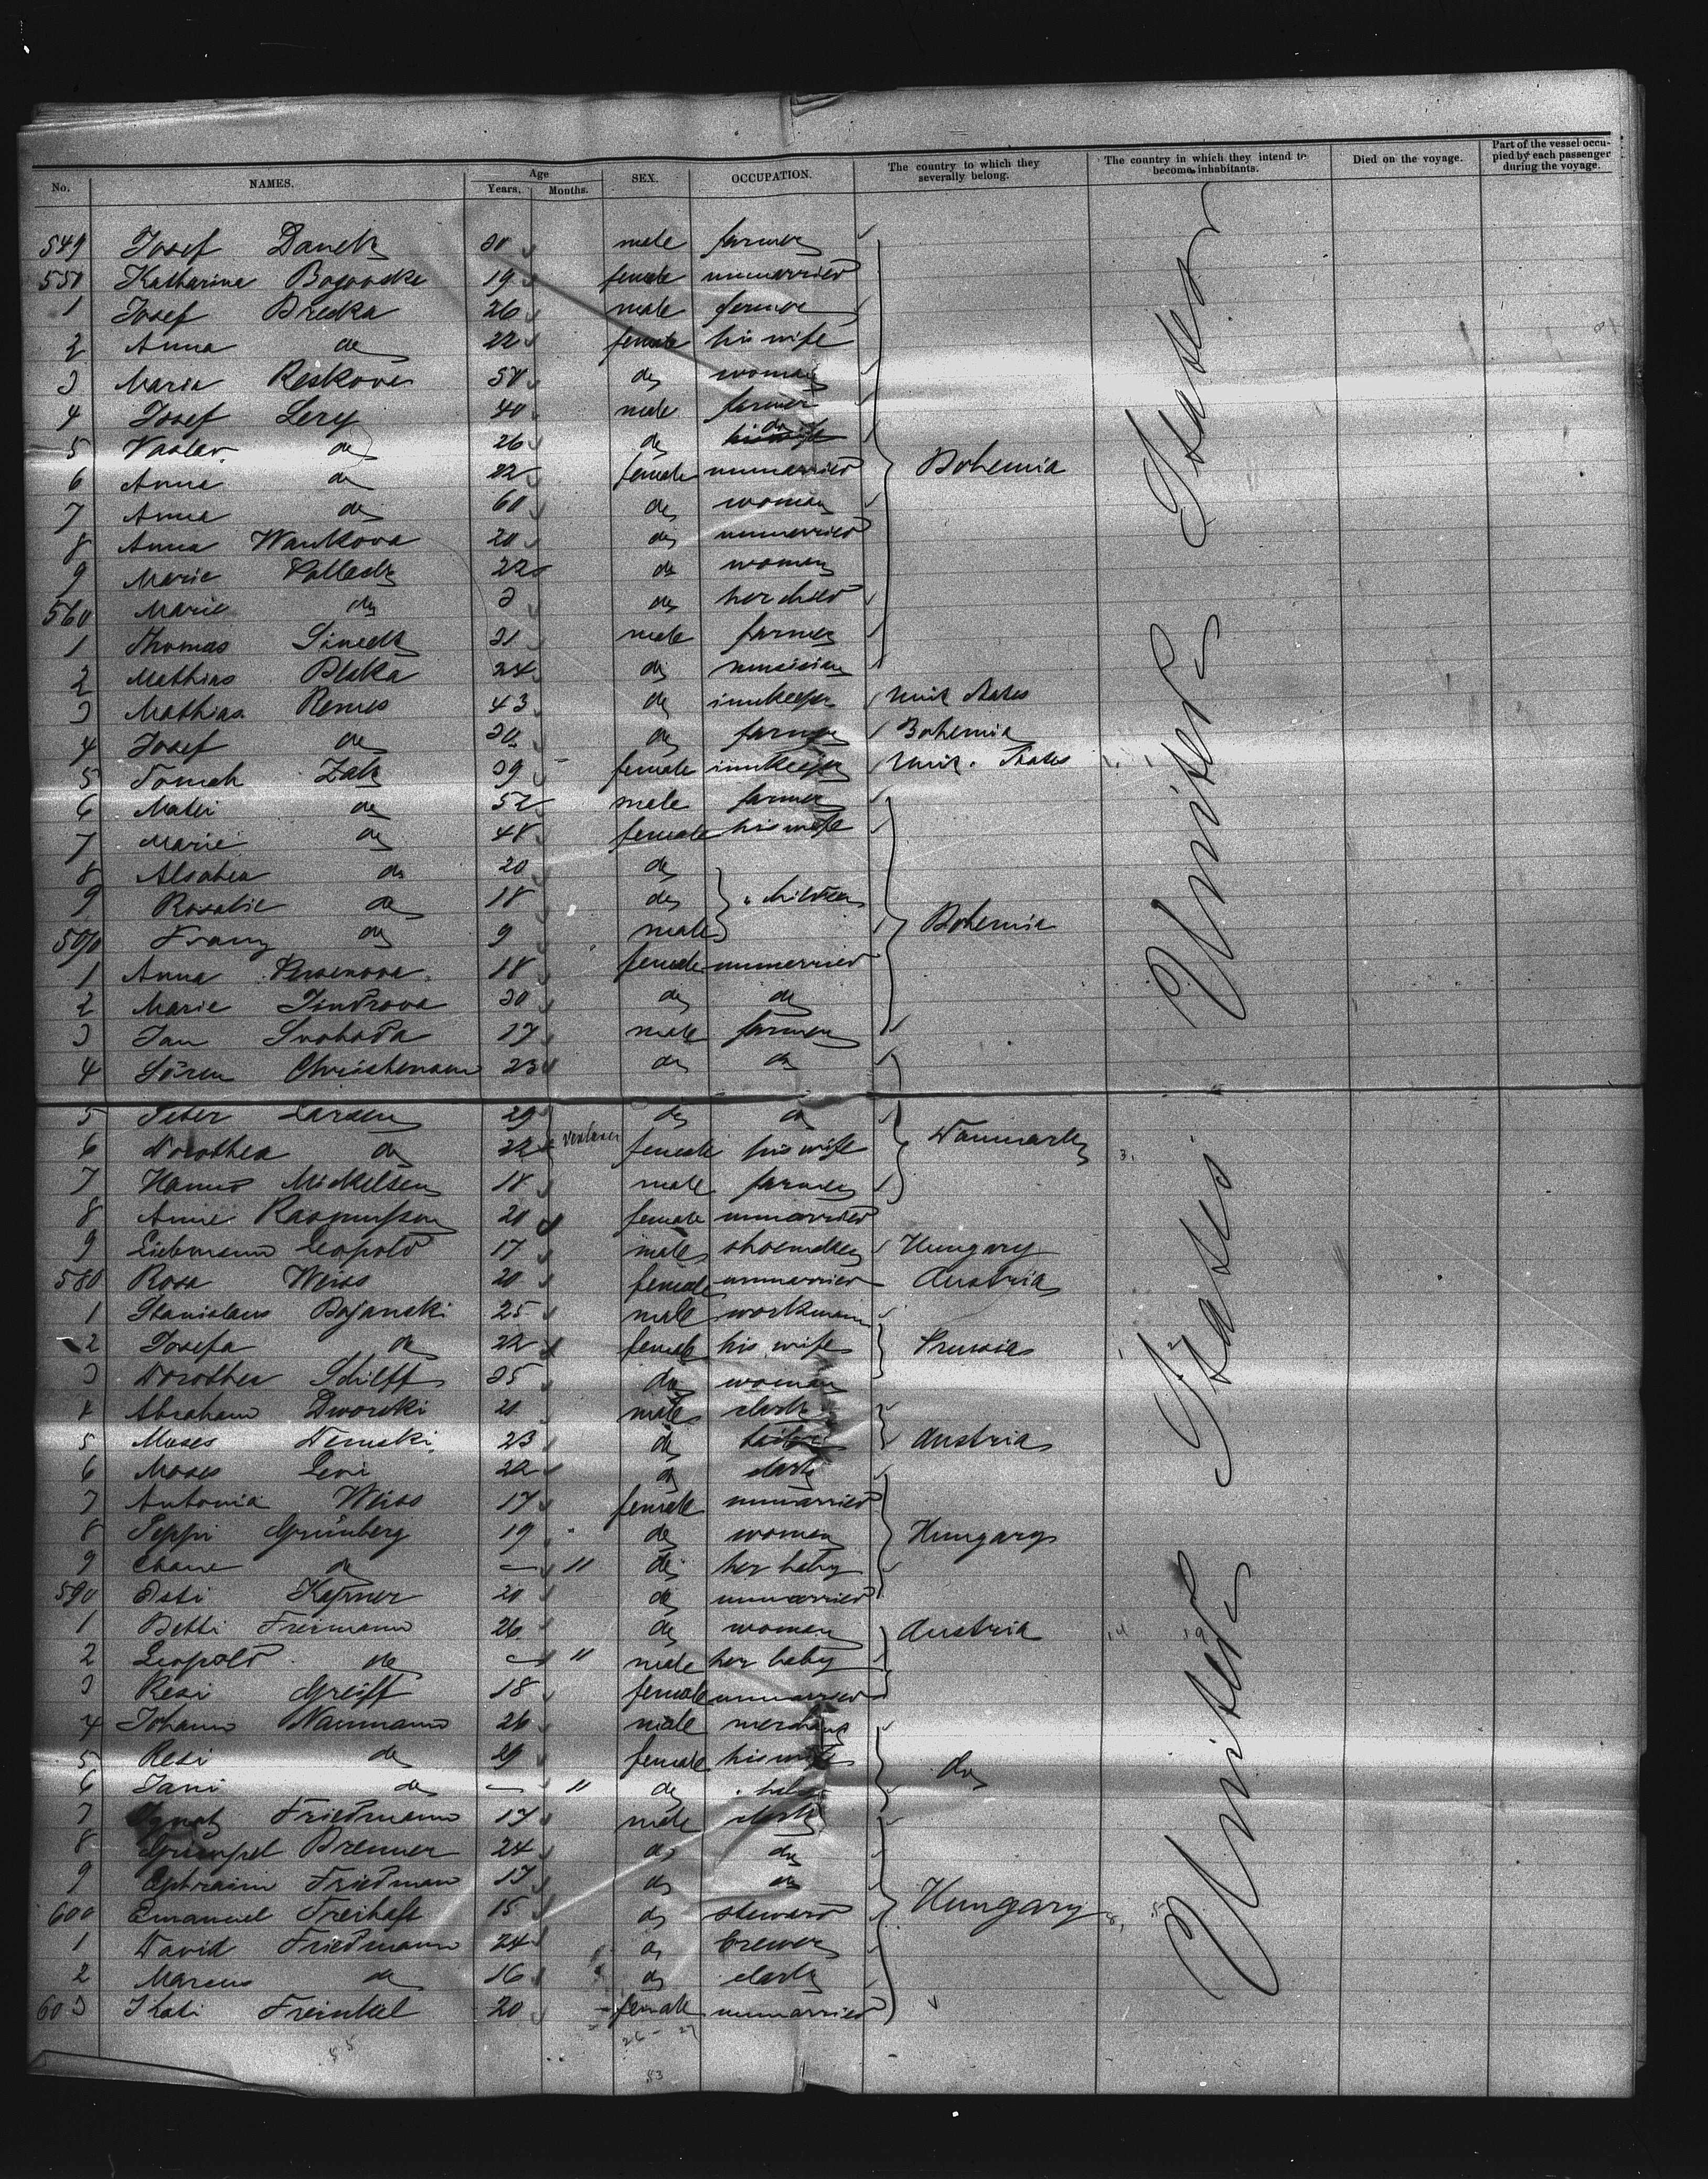 No. NAMES. Age Years. Months. SEX. OCCUPATION. The country to which they severally belong. The country in which they intend to become inhabitants. Died on the voyage. Part of the vessel occupied by each passenger during the voyage.
549 Josef Danek male farmer
550 Katharina 19 female unmarried
1 Josef 26 male farmer
2 Anna do 22 female his wife
3 Maria Reskova do woman
4 Josef Lery 40 male farmer
5 Vaslav do 26 do do
6 Anna do 22 female unmarried Bohemia
7 Anna do 60 do woman
8 Anna Wankova 20 do unmarried
9 Marie 22 do woman
560 Marie do 3 do her child
1 Thomas male farmer
2 Mathias 24 do musician
3 Mathias Remes 43 do innkeeper Unit. States
4 Josef do do farmer Bohemia
5 Tomek Zak 39 female innkeeper Unit. States
6 Matei do 52 male farmer
7 Marie do 48 female his wife
8 do 20 do
9 Rosalie do 18 do children
570 Franz do 9 male Bohemia
1 Anna 18 female unmarried
2 Marie 20 do do
3 Jan Svoboda 17 male farmer
4 Sören Christensen 23 do do
5 Peter Larsen 29 do do
6 Dorothea do 22 female his wife Danmark
7 Hannes Mickelsen 18 male farmer
8 Annie Rasmussen 20 female unmarried
9 Liebmann Leopold 17 male shoemaker Hungary
580 Rosa Weiss 20 female unmarried Austria
1 Stanislaus Bojanski 25 male workman
2 Josefa do 22 female his wife Prussia
3 Dorothea Schilff 35 do woman
4 Abraham Dworski 20 male clerk
5 Moses 23 do Austria
6 Moses Levi 22 do clerk
7 Antonia Weiss 17 female unmarried
8 Peppi Grünberg 19 do woman Hungary
9 Chane do — 11 do her baby
590 Resi 20 do unmarried
1 Betti Freimann 26 do woman Austria
2 Leopold do — 11 male her baby
3 Resi Greiff 18 female unmarried
4 Johann Naumann 26 male merchant
5 Resi do 29 female his wife do
6 Jani do — 11 do baby
7 Ignatz Friedmann 17 male clerk
8 Brenner 24 do do
9 Ephraim Friedmann 17 do do
600 Emanuel Freihaft 15 do steward Hungary
1 David Friedmann 24 do brewer
2 Marcus do 16 do clerk
603 Kati Freinkel 20 female unmarried
United States
United States